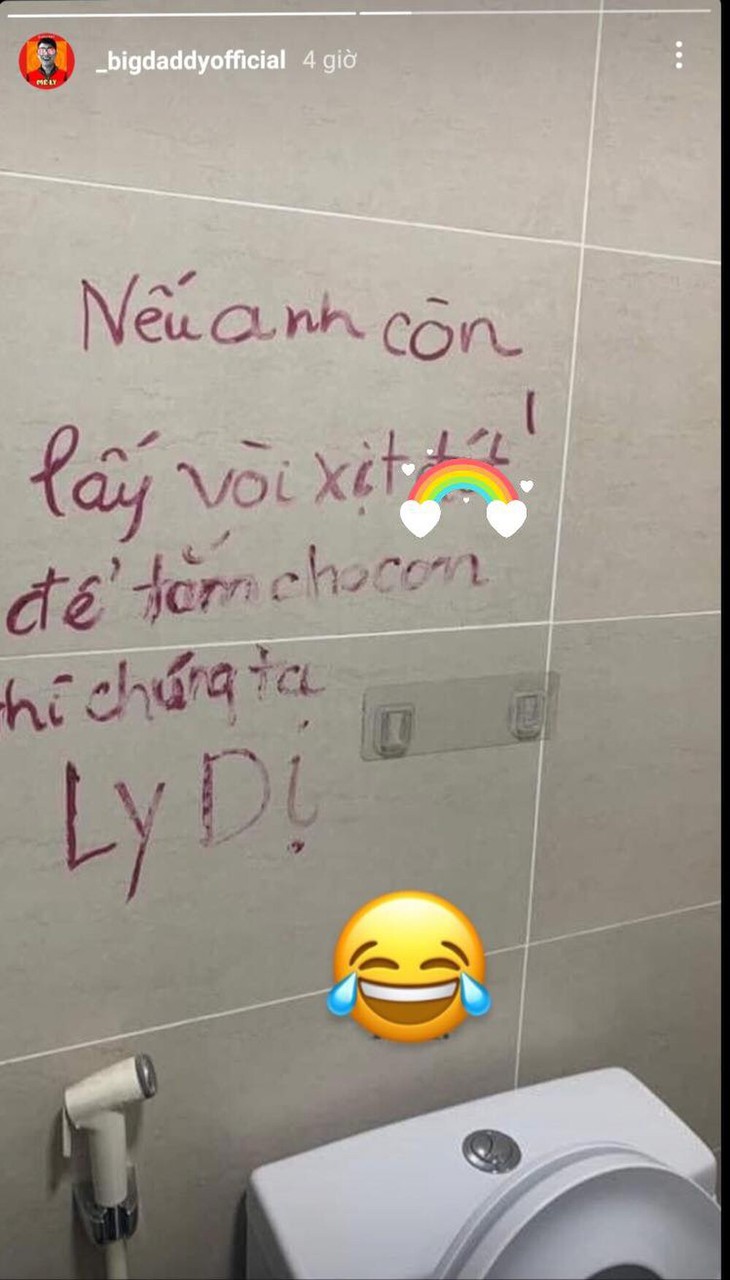 _bigdaddyofficial 4 giờ
Nếu anh còn
lấy vòi xịt
để tắm cho con
thì chúng ta
Ly Dị